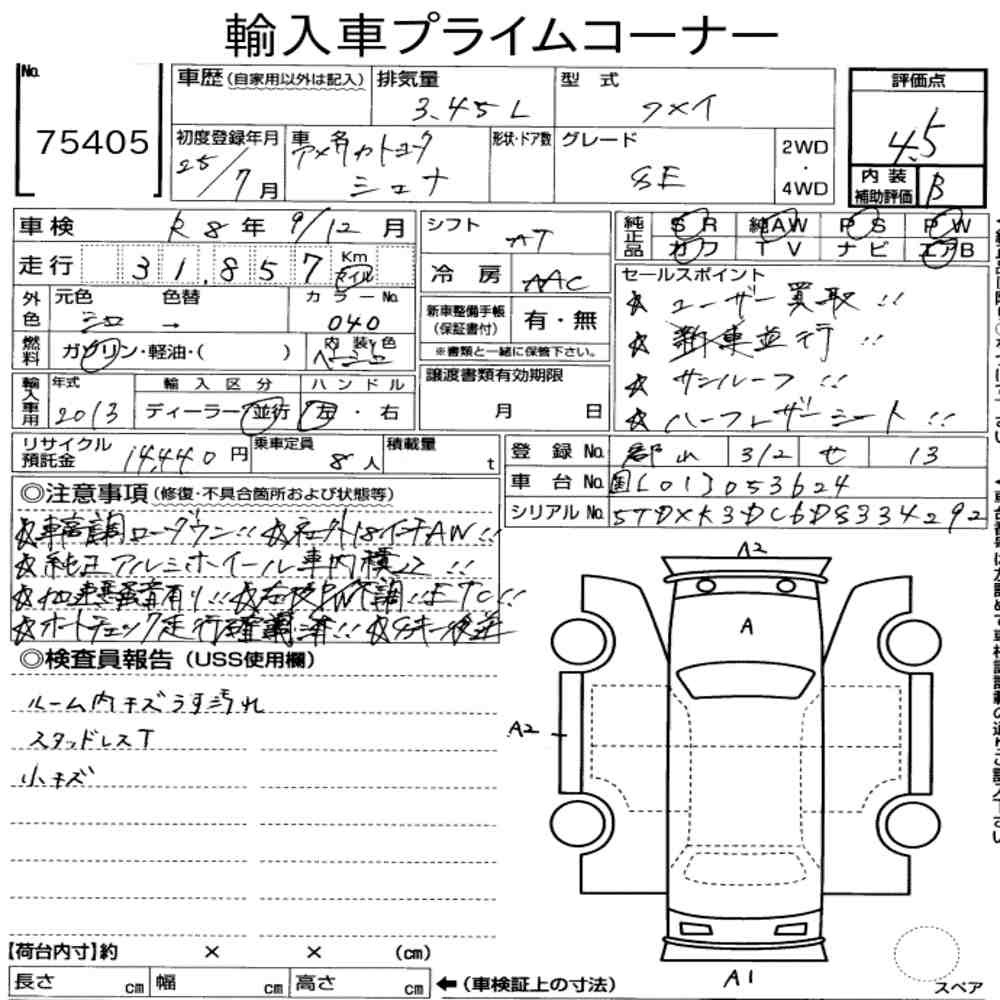 輸入車プライムコーナー
No.
75405
車歴(自家用以外は記入)
排気量
3.45 L
型式
フメイ
初度登録年月
25/7月
車名
アメリカトヨタ
シエナ
形状・ドア数
グレード
SE
2WD
・
4WD
評価点
4.5
内装
補助評価
B
車検 R8年 9/12月
走行 31,857 Km マイル
外色
元色 シロ →
色替
カラーNo. 040
燃料
ガソリン・軽油・( )
内装色 ベージュ
シフト AT
冷房 AAC
新車整備手帳
(保証書付)
有・無
※書類と一緒に保管下さい。
純正品
SR 純AW PS PW
カワ TV ナビ エアB
セールスポイント
☆ ユーザー買取!!
☆ 新車並行!!
☆ サンルーフ!!
☆ ハーフレザーシート!!
輸入車用
年式 2013
輸入区分
ディーラー・並行
ハンドル
左・右
譲渡書類有効期限
月 日
リサイクル預託金 14,440円
乗車定員 8人
積載量 t
登録No. 郡山 312 せ 13
車台No. 国[01]053624
シリアルNo. 5TDXK3DC6DS334292
◎注意事項(修復・不具合箇所および状態等)
☆車高調ローダウン!! ☆社外18インチAW!!
☆純正アルミホイール車内積込!!
☆オートチェック走行確認済!! ☆
◎検査員報告(USS使用欄)
ルーム内キズうす汚れ
スタッドレスT
小キズ
A2
A
A2
A1
【荷台内寸】約 × × (cm)
長さ cm 幅 cm 高さ cm
←(車検証上の寸法)
スペア